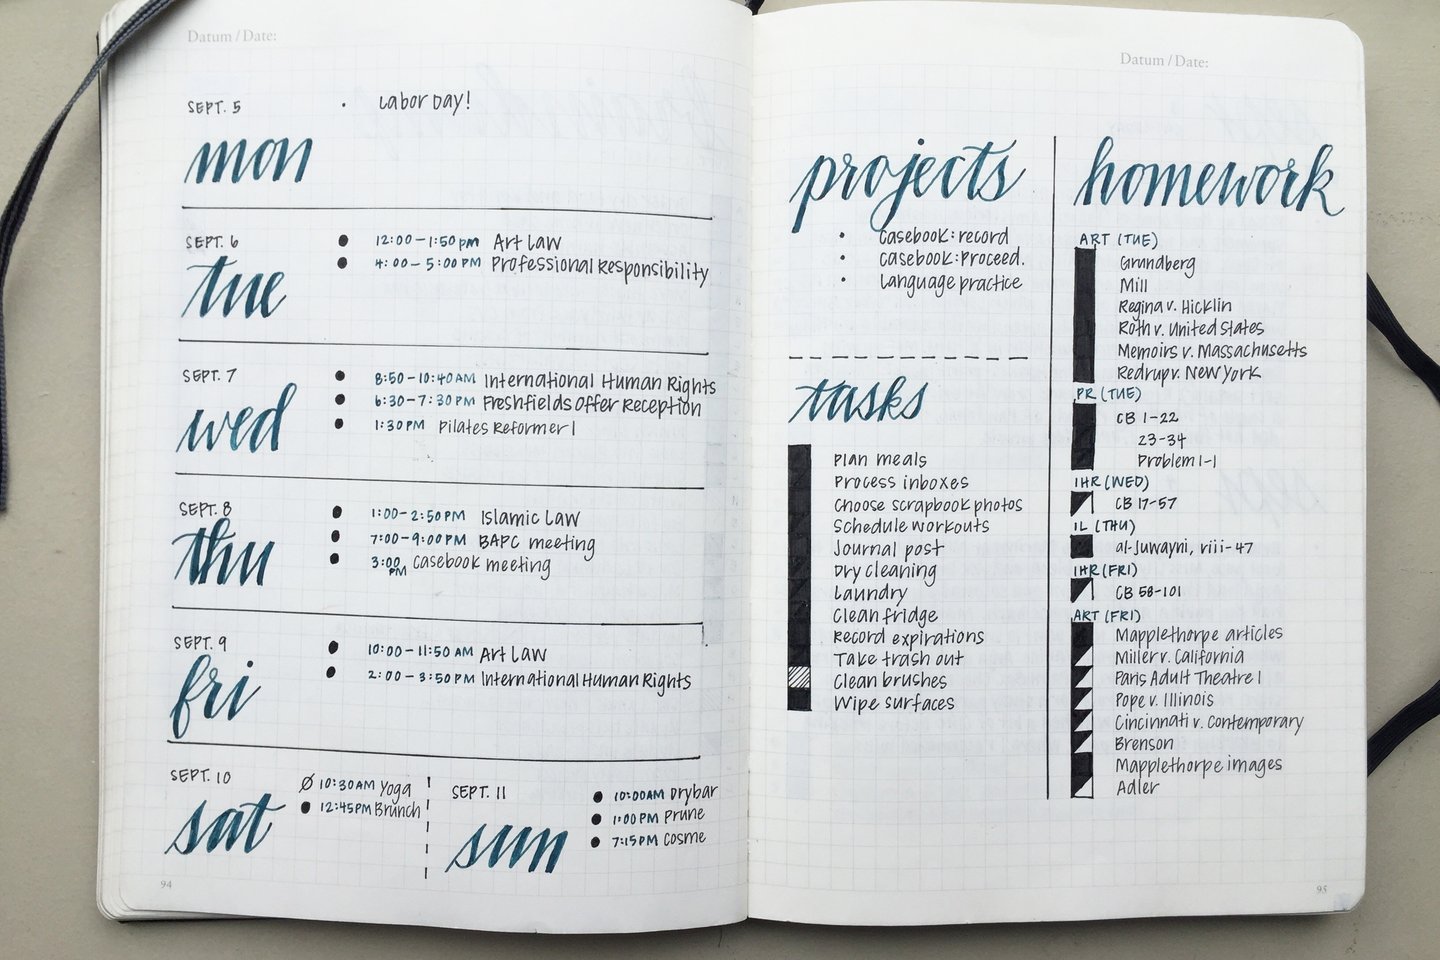 Datum / Date:
SEPT. 5
Labor Day!
mon
SEPT. 6
12:00-1:50 pm Art Law
4:00-5:00 PM Professional Responsibility
tue
SEPT. 7
8:50-10:40 AM International Human Rights
6:30-7:30 PM Freshfields Offer Reception
1:30 PM Pilates Reformer 1
wed
SEPT. 8
1:00-2:50 PM Islamic Law
7:00-9:00 PM BAPC meeting
3:00 PM casebook meeting
thu
SEPT. 9
10:00-11:50 AM Art Law
2:00-3:50 PM International Human Rights
fri
SEPT. 10
10:30 AM Yoga
12:45 PM Brunch
sat
SEPT. 11
10:00 AM Drybar
1:00 PM Prune
7:15 PM Cosme
sun
94
Datum / Date:
projects
Casebook: record
Casebook: Proceed.
Language practice
tasks
Plan meals
Process inboxes
Choose scrapbook photos
Schedule workouts
Journal post
Dry cleaning
Laundry
Clean fridge
Record expirations
Take trash out
Clean brushes
Wipe surfaces
homework
ART (TUE)
Grundberg
Mill
Regina v. Hicklin
Roth v. United States
Memoirs v. Massachusetts
Redrup v. New York
PR (TUE)
CB 1-22
23-34
Problem 1-1
IHR (WED)
CB 17-57
IL (THU)
al-Juwayni, viii-47
IHR (FRI)
CB 58-101
ART (FRI)
Mapplethorpe articles
Miller v. California
Paris Adult Theatre I
Pope v. Illinois
Cincinnati v. Contemporary
Brenson
Mapplethorpe images
Adler
95